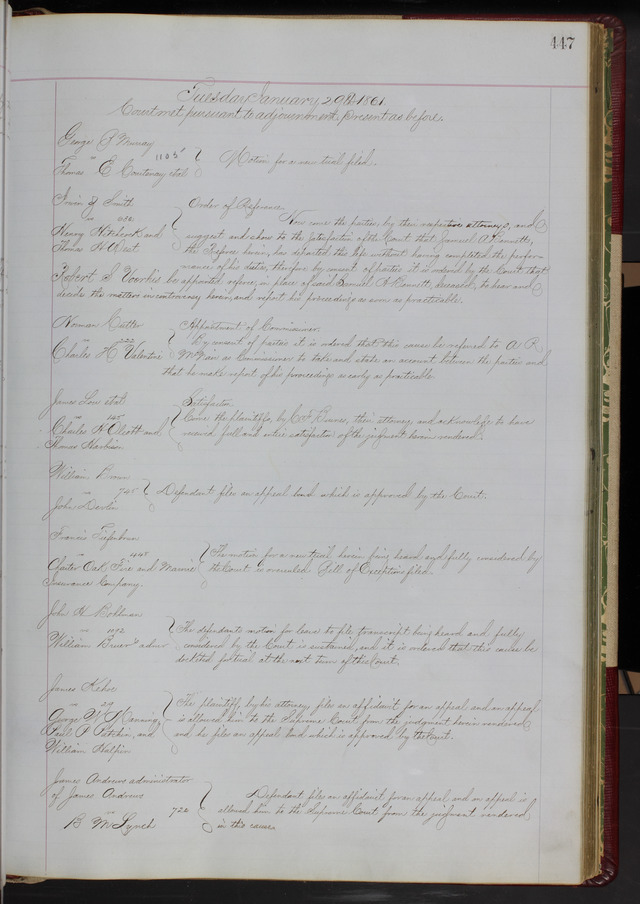 447
Tuesday January 29th 1861
Court met pursuant to adjournment, present as before.
George Murray
" 1105 Motion for a new trial filed.
Thomas E Courtenay et al
Irwin Z Smith Order of Reference
" Now come the parties, by their respective attorneys, and
Henry and suggest and show to the satisfaction of the Court that Samuel A Bennett,
Thomas West the Referee herein, has departed this life without having completed the perfor-
mance of his duties, therefore by consent of parties it is ordered by the Court that
Robert S Voorhis be appointed referee, in place of said Samuel A Bennett, deceased, to hear and
decide the matters in controversy herein, and report his proceedings as soon as practicable.
Norman Cutter Appointment of Commissioner
" 222 By consent of parties it is ordered that this cause be referred to A R
Charles H Valentine as Commissioner to take and state an account between the parties and
that he make report of his proceedings as early as practicable
James Low et al Satisfaction
" 145 Come the plaintiffs, by their attorney and acknowledge to have
Charles H Olcott and received full and entire satisfaction of the judgment herein rendered.
Thomas Harbison
William Brown
" 745 Defendant files an appeal bond which is approved by the Court.
John Devlin
Francis
" 448 The motion for a new trial herein being heard and fully considered by
Charter Oak, Fire and Marine the Court is overruled. Bill of Exceptions filed
Insurance Company.
John H
" 1092 The defendants motion for leave to file transcript being heard and fully
William admr considered by the Court is sustained, and it is ordered that this cause be
docketed for trial at the next term of this Court.
James Kehoe
" 29 The plaintiff, by his attorney, files an affidavit for an appeal and an appeal
George W Manning, is allowed him to the Supreme Court from the judgment herein rendered
and and he files an appeal bond which is approved by the Court.
William Halpin
James Andrews administrator
of James Andrews Defendant files an affidavit for an appeal and an appeal is
" 722 allowed him to the Supreme Court from the judgment rendered
B M Lynch in this cause.